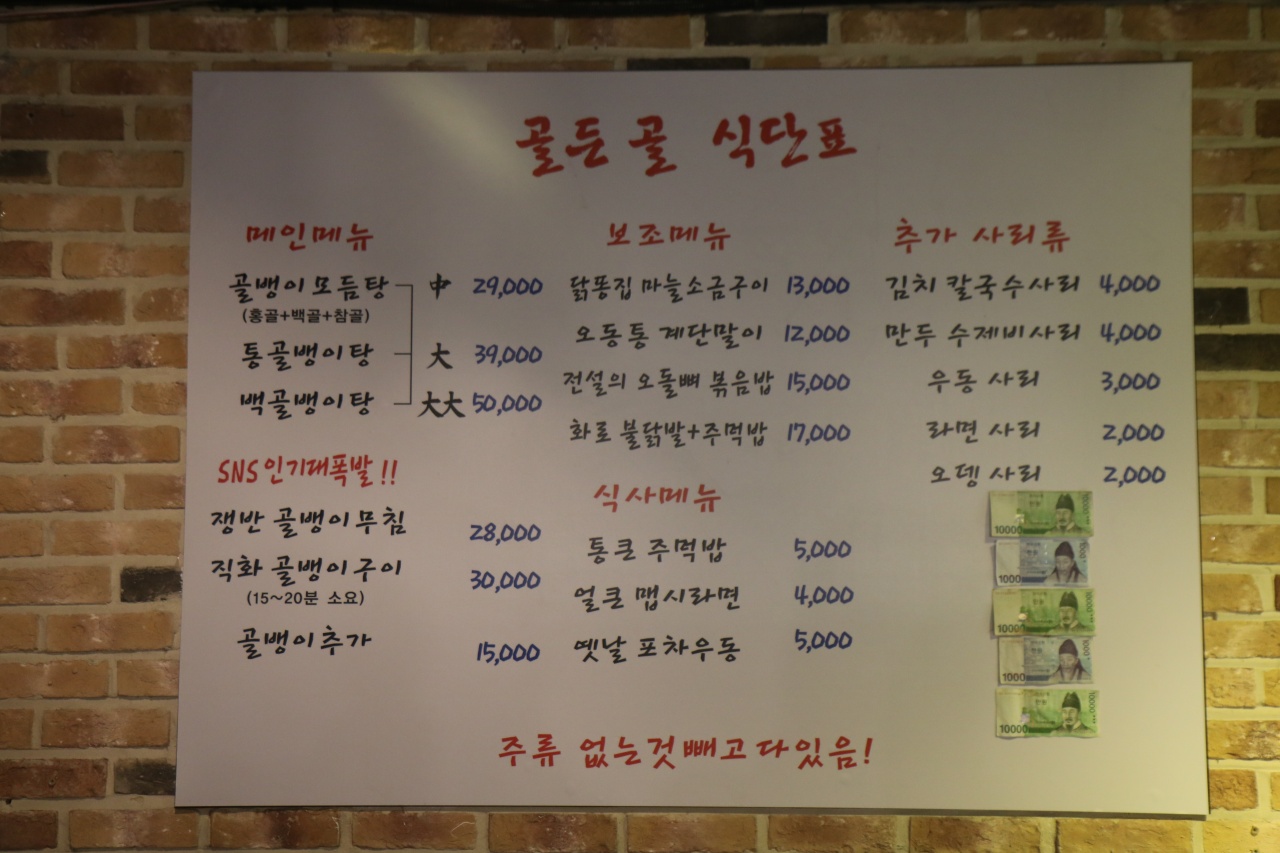 골든골 식단표
메인메뉴
골뱅이모듬탕 中 29,000
(홍골+백골+참골)
통골뱅이탕 大 39,000
백골뱅이탕 大大 50,000
SNS인기대폭발!!
쟁반 골뱅이무침 28,000
직화 골뱅이구이 30,000
(15~20분 소요)
골뱅이추가 15,000
보조메뉴
닭똥집 마늘소금구이 13,000
오동통 계단말이 12,000
전설의 오돌뼈 볶음밥 15,000
화로 불닭발+주먹밥 17,000
식사메뉴
통큰 주먹밥 5,000
얼큰 맵시라면 4,000
옛날 포차우동 5,000
추가 사리류
김치 칼국수사리 4,000
만두 수제비사리 4,000
우동 사리 3,000
라면 사리 2,000
오뎅 사리 2,000
10000
1000
10000
1000
10000
주류 없는것빼고다있음!